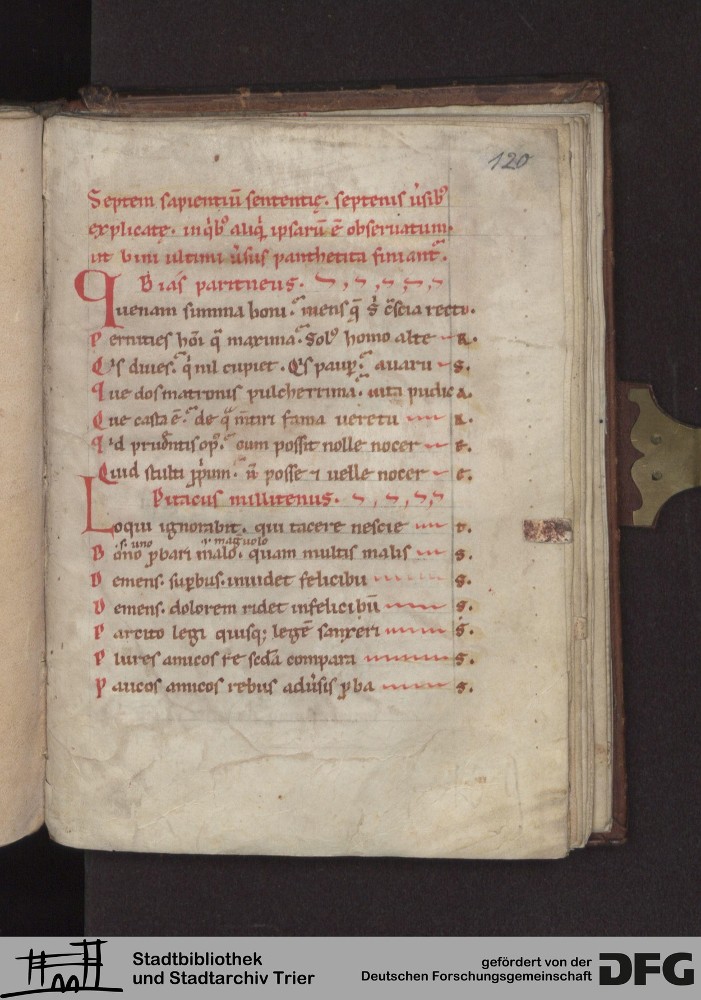 120
Septem sapientiū sententię. septenis ùsib᷒
explicatę. in q̇b᷒ aliq̇ ipsarū ē obseruatum.
ut bini ultimi ùsus panthetita finiant᷑.
Bias parieneus.
Quenam summa boni. mens q̄ s̄ c̄scia recto.
Pernities hōi q̄ maxima. sol᷒ homo alte R.
Q̇s diues. q̇ nil cupiet. Q̇s paup̲. auaru S.
Que dos matronis pulcherrima. uita pudic A.
Que casta ē. de q̄ m̄tiri fama ueretu R.
Q̇d prud̄ntis op᷒. cum possit nolle nocer E.
Quid stulti p̱p̄um. n̄ posse ⁊ uelle nocer E.
Pitacus millitenus.
Loqui ignorabit. qui tacere nescie T.
.s. uno
Bono p̱bari malo. quam multis malis S.
Demens. sup̱bus. inuidet felicibu S.
Demens. dolorem ridet infelicibū S.
Pareito legi quisq; legē sanxeri S.
Plures amicos re sc̄da compara S.
Paucos amicos rebus adùsis p̱ba S.
Stadtbibliothek
und Stadtarchiv Trier
gefördert von der
Deutschen Forschungsgemeinschaft
DFG